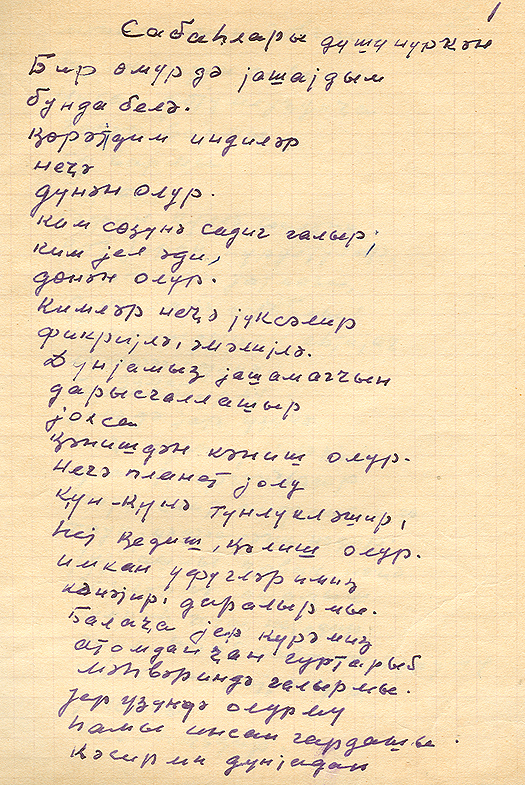 1
Сабаһлары дүшүнүркән
Бир өмүр дә јашајдым
бунда белә.
Ҝөрәјдим индиләр
нечә
дүнән олур.
Ким сөзүнә садиг галыр,
ким јел әди,
дөнән олур.
Кимләр нечә јүксәлир
фикријлә, әмәлијлә.
Дүнјамыз јашамагчын
дарысгаллашыр
јохса
ҝенишдән ҝениш олур.
Нечә планет јолу
ҝүн-ҝүнә түнлүкләшир,
һеј ҝедиш, ҝәлиш олур.
имкан үфүгләримиз
ҝенәлир, даралырмы.
Балаҹа јер күрәмиз
атомдан ҹан гуртарыб
мәһвәриндә галырмы.
Јер үзүндә олурму
һамы инсан гардашы.
Кәсирми дүнјадан